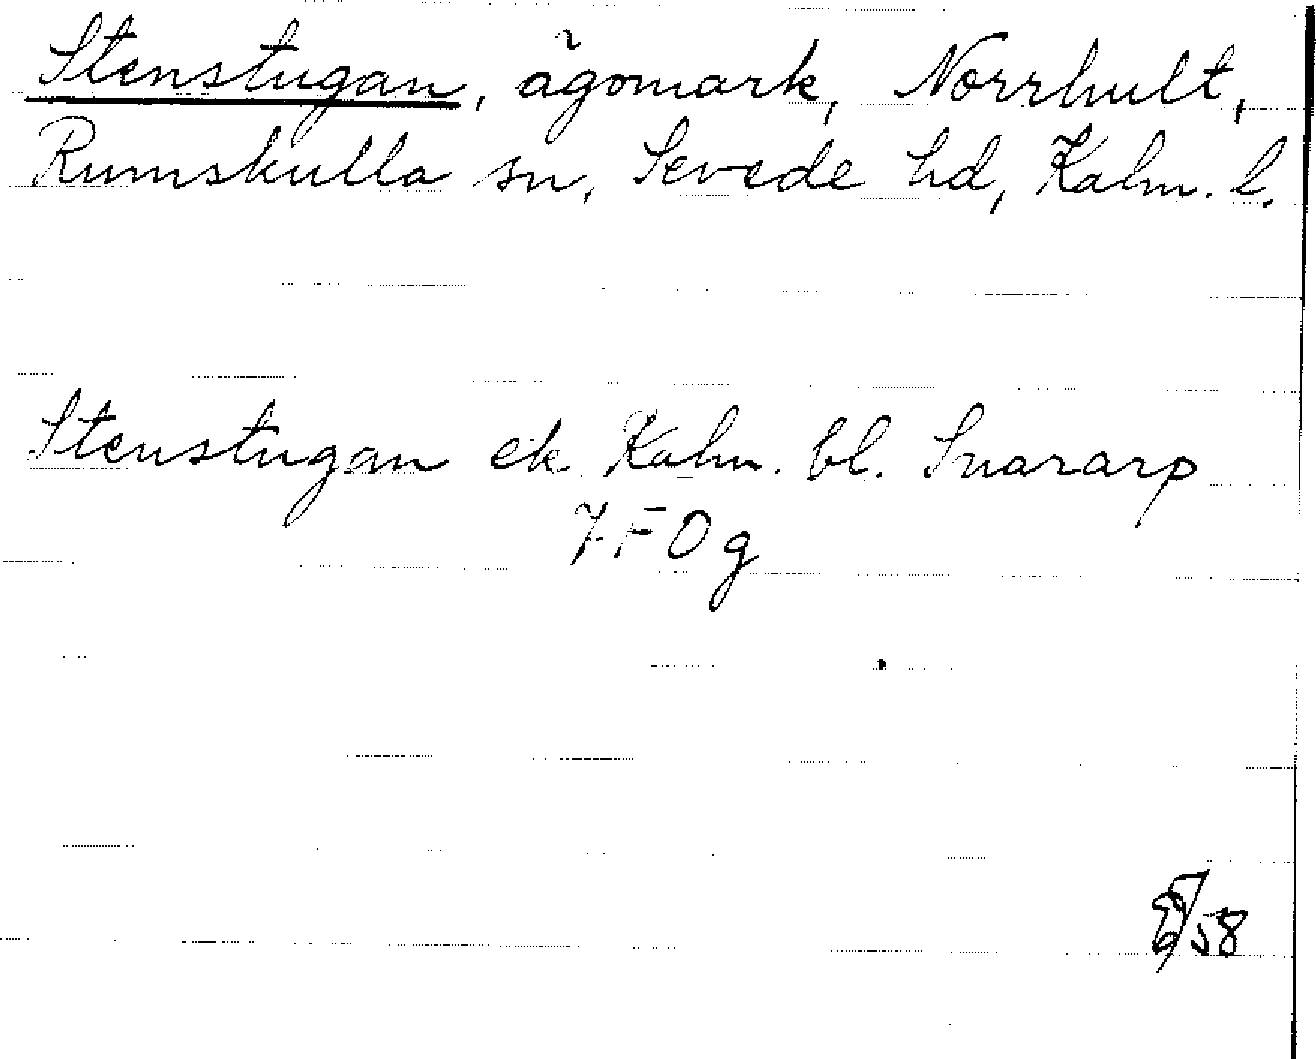 Stenstugan, ägomark, Norrhult,
Rumskulla sn, Sevede hd, Kalm. l.
Stenstugan ek. Kalm. bl. Snararp
7 F O g
/58